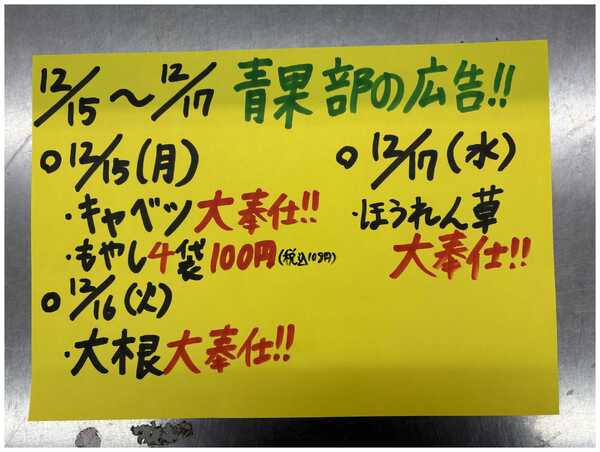 12/15～12/17 青果部の広告!!
○12/15(月)
・キャベツ大奉仕!!
・もやし4袋100円(税込108円)
○12/16(火)
・大根大奉仕!!
○12/17(水)
・ほうれん草
大奉仕!!